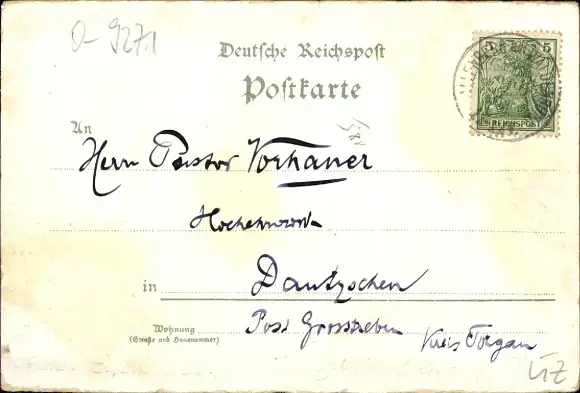 O-9271
Deutsche Reichspost
Postkarte
5
REICHSPOST
An
Herrn Pastor Vorhauer
Hochehrwürden
in Dautzschen
Wohnung
(Straße und Hausnummer)
Post Grosstreben Kreis Torgau